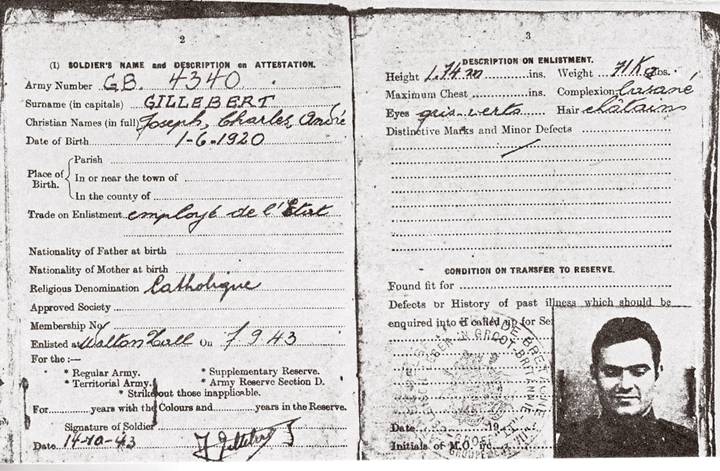 2
(1) SOLDIER'S NAME and DESCRIPTION on ATTESTATION.
Army Number GB. 4340
Surname (in capitals) GILLEBERT
Christian Names (in full) Joseph, Charles, André
Date of Birth 1-6-1920
Place of Birth.
Parish
In or near the town of
In the county of
Trade on Enlistment employé de l'Etat
Nationality of Father at birth
Nationality of Mother at birth
Religious Denomination Catholique
Approved Society
Membership No
Enlisted at Walton Hall On 7 9 43
For the :—
* Regular Army. * Supplementary Reserve.
* Territorial Army. * Army Reserve Section D.
* Strike out those inapplicable.
For years with the Colours and years in the Reserve.
Signature of Soldier
Date 14-10-43
3
DESCRIPTION ON ENLISTMENT.
Height 1.74 m ins. Weight 71 Kg lbs.
Maximum Chest ins. Complexion basané
Eyes gris-verts Hair châtains
Distinctive Marks and Minor Defects
CONDITION ON TRANSFER TO RESERVE.
Found fit for
Defects or History of past illness which should be
enquired into if called up for Ser
Date 19
Initials of M.O. i/c